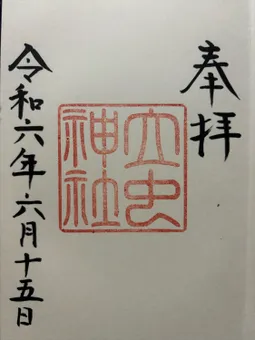 奉拝
大虫
神社
令和六年六月十五日